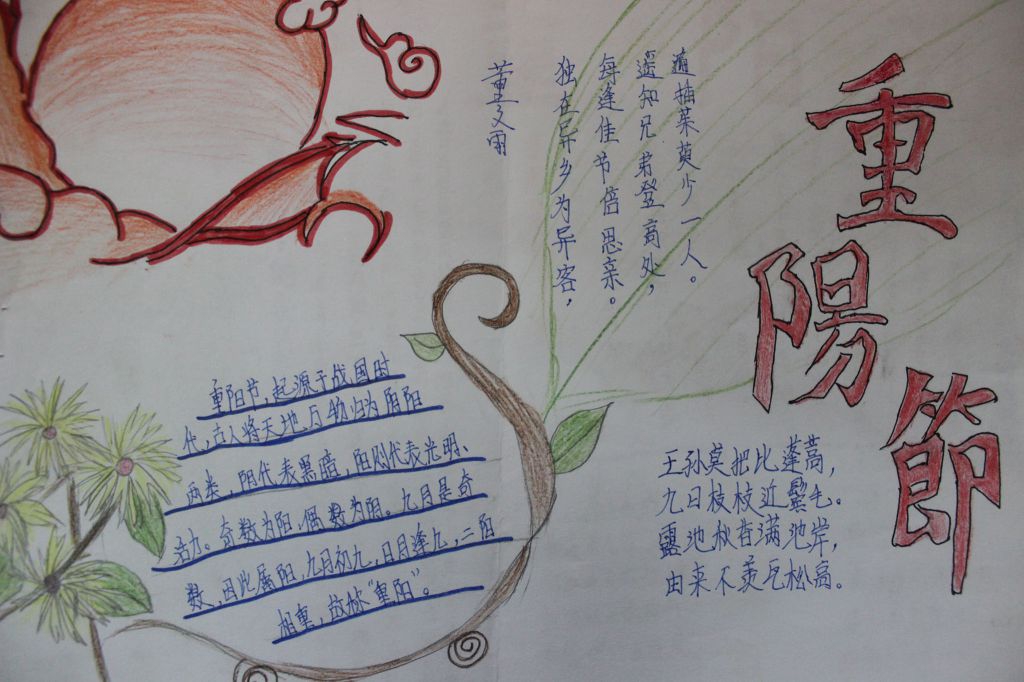 重陽節
独在异乡为异客，
每逢佳节倍思亲。
遥知兄弟登高处，
遍插茱萸少一人。
董文雨
重阳节，起源于战国时
代，古人将天地、万物归为阴阳
两类，阴代表黑暗，阳则代表光明、
活力。奇数为阳，偶数为阴。九月是奇
数，因此属阳，九月初九，日月逢九，二阳
相重，故称“重阳”。
王孙莫把比蓬蒿，
九日枝枝近鬓毛。
露池秋香满池岸，
由来不羡瓦松高。